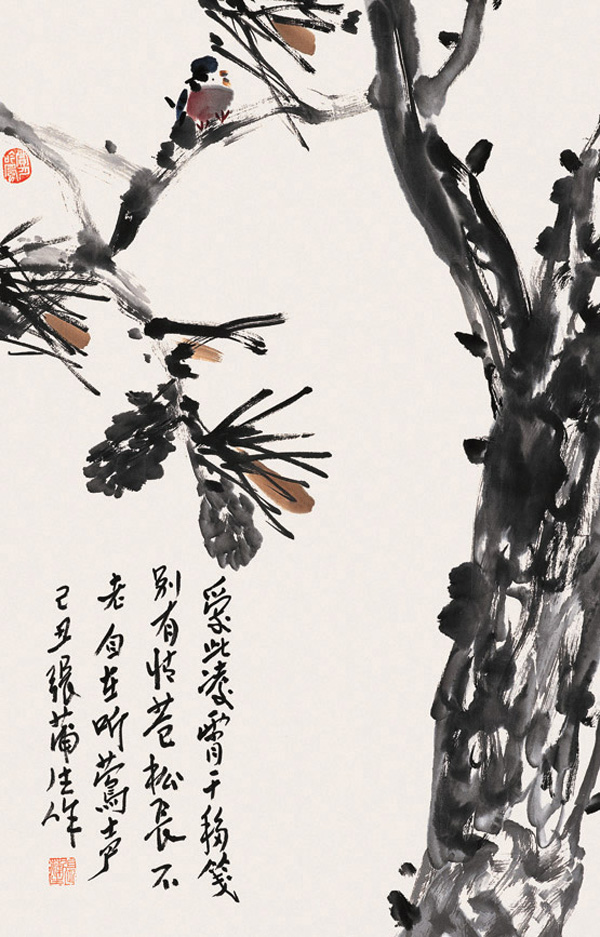 爱此凌霄干 移笺
别有情苍松长不
老自在听莺声
己丑张蒲生作